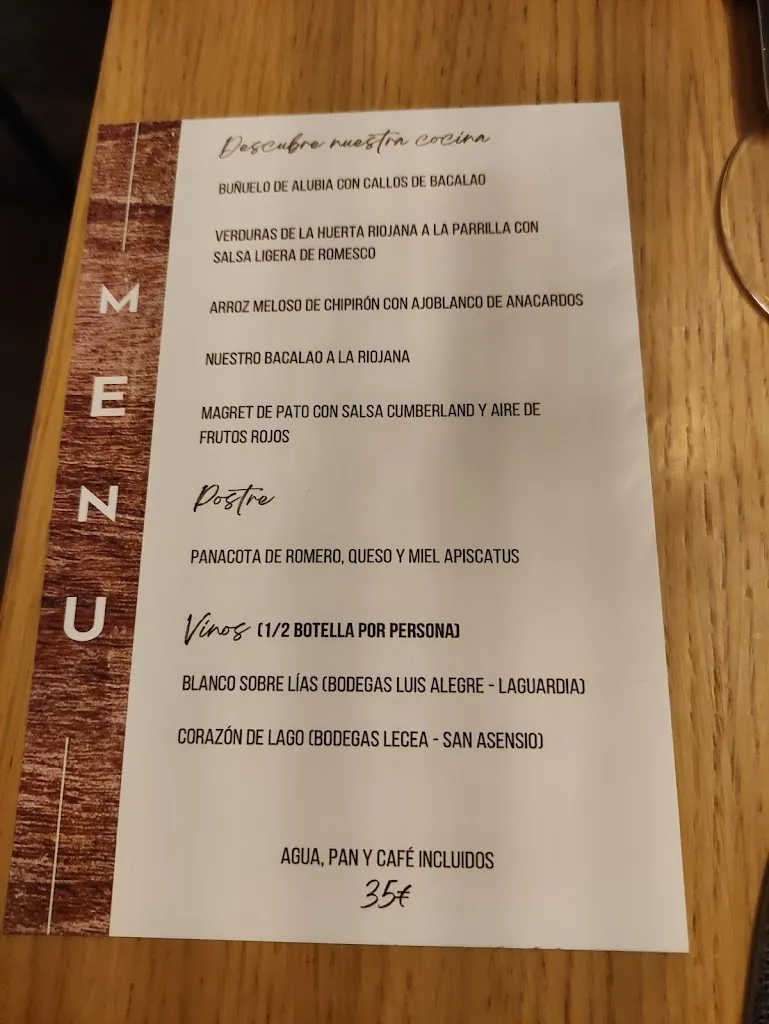 MENU
Descubre nuestra cocina
BUÑUELO DE ALUBIA CON CALLOS DE BACALAO
VERDURAS DE LA HUERTA RIOJANA A LA PARRILLA CON
SALSA LIGERA DE ROMESCO
ARROZ MELOSO DE CHIPIRÓN CON AJOBLANCO DE ANACARDOS
NUESTRO BACALAO A LA RIOJANA
MAGRET DE PATO CON SALSA CUMBERLAND Y AIRE DE
FRUTOS ROJOS
Postre
PANACOTA DE ROMERO, QUESO Y MIEL APISCATUS
Vinos (1/2 BOTELLA POR PERSONA)
BLANCO SOBRE LÍAS (BODEGAS LUIS ALEGRE - LAGUARDIA)
CORAZÓN DE LAGO (BODEGAS LECEA - SAN ASENSIO)
AGUA, PAN Y CAFÉ INCLUIDOS
35€